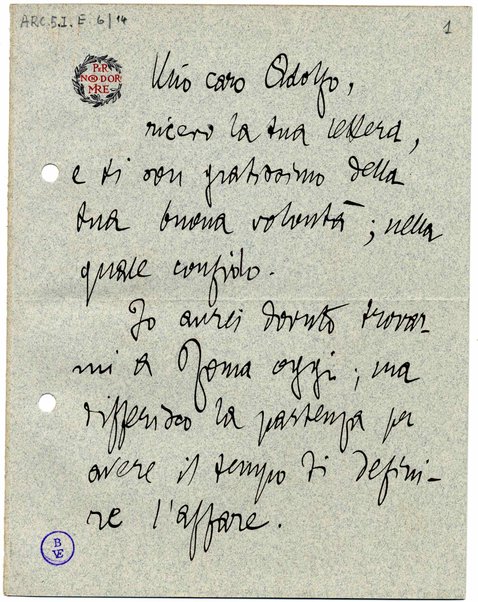 ARC.5.I.E 6/14
1
PER
NON DOR
MIRE
Mio caro Adolfo,
ricevo la tua lettera,
e ti son gratissimo della
tua buona volontà; nella
quale confido.
Io avrei dovuto trovar-
mi a Roma oggi; ma
differisco la partenza per
avere il tempo di defini-
re l'affare.
B
VE